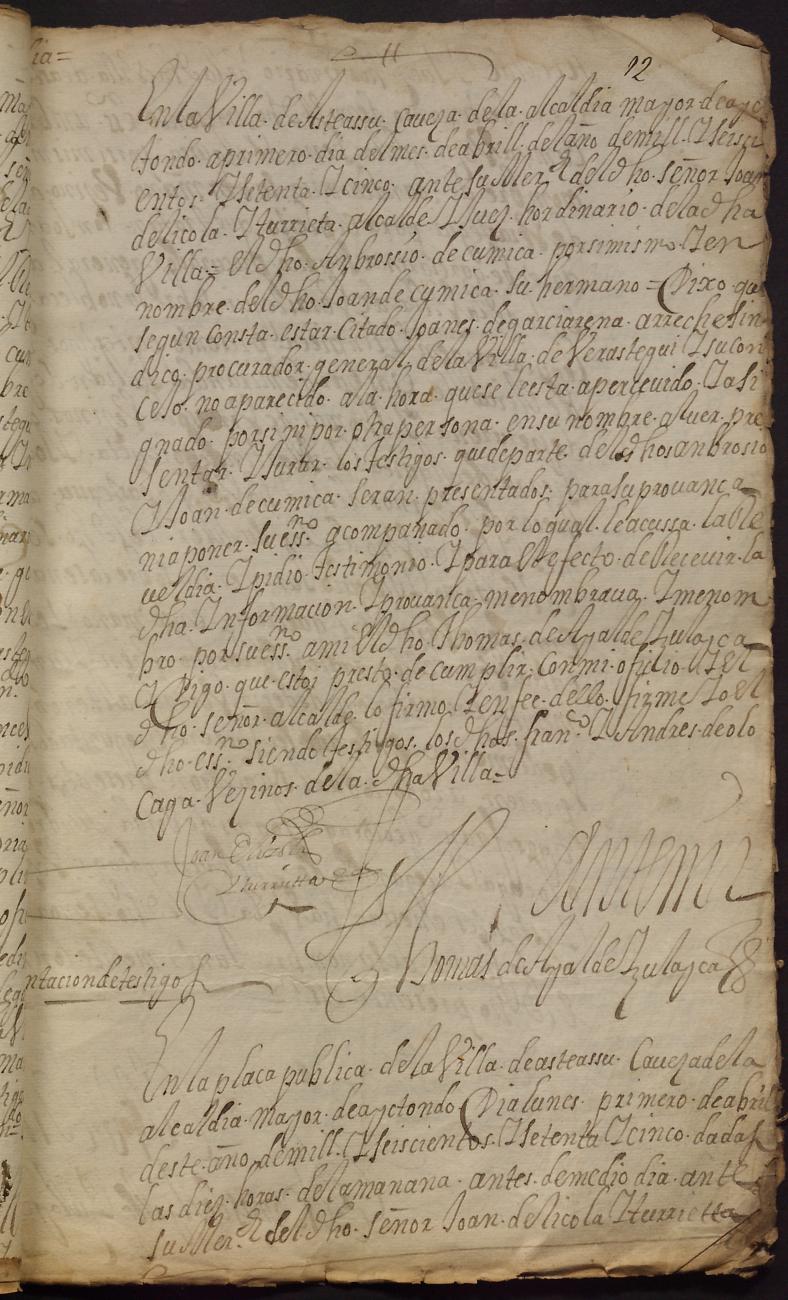 12
En la Villa de Asteassu caveza de la alcaldia mayor de ayz
tondo a primero dia del mes de abrill del año de mill y seisci
entos y setenta y cinco ante su Mer.d del dho señor Joan
de licola yturrieta alcalde y Juez hordinario de la dha
Villa = el dho Ambrossio de cumica por si mismo y en
nombre del dho Joan de cumica su hermano = Dixo que
segun consta estar citado Joanes de garciarena arreche sin
dico procurador general de la Villa de Verastegui y su con
cejo no aparecido a la hora que se le esta apercevido y asi
gnado por si ni por otra persona en su nombre a ver pre
sentar y jurar los testigos que de parte de los dhos anbrosio
y Joan de cumica seran presentados para su provança
ni a poner su ess.no acompañado por lo qual le acussa la Re
veldia y pidio testimonio y para el efecto de Recevir la
dha Informacion y provança me nombrava y me nom
bro por su ess.no a mi el dho Thomas de Ayalde Zulayca
y Digo que estoi presto de cumplir con mi oficio y el
dho señor alcalde lo firmo y en fee dello firme yo el
dho ess.no siendo testigos los dhos fran.co y Andres de olo
caga Vezinos de la dha Villa =
Joan de licola
yturrieta
Antemi
Thomas de Ayalde Zulayca
ntacion de testigos
En la plaça publica de la Villa de asteassu Caveza de la
alcaldia mayor de ayztondo Dia lunes primero de abril
deste año de mill y seiscientos y setenta y cinco dadas
las diez horas de la mañana antes de medio dia ante
su Mer.d del dho señor Joan de licola yturrieta